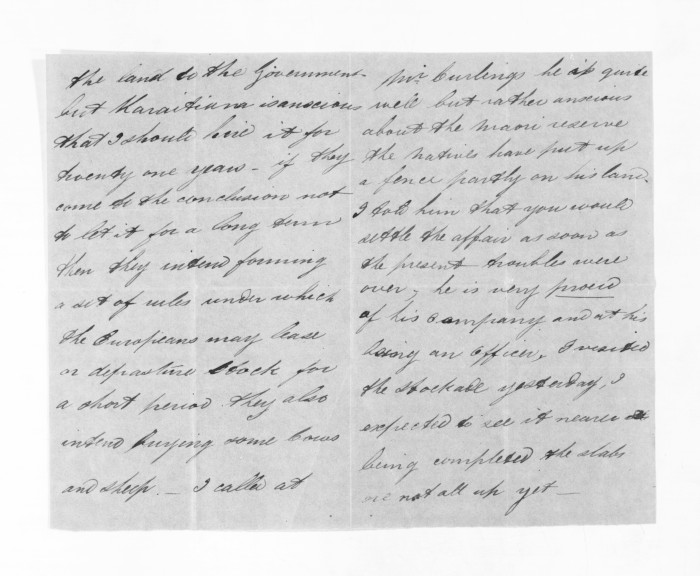 the land to the Government -
but Karaitiana is anscious
that I should hire it for
twenty one years - if they
come to the conclusion not
to let it for a long term
then they intend forming
a set of rules under which
the Europeans may lease
or depasture stock for
a short period they also
intend buying some Cows
and sheep. - I called at
Mr Curlings he is quite
well but rather anxious
about the Maori reserve
the Natives have put up
a fence partly on his land.
I told him that you would
settle the affair as soon as
the present troubles were
over, he is very proud
of his Company and at his
being an Officer, I visited
the stockade yesterday, I
expected to see it nearer
being completed the slabs
are not all up yet -